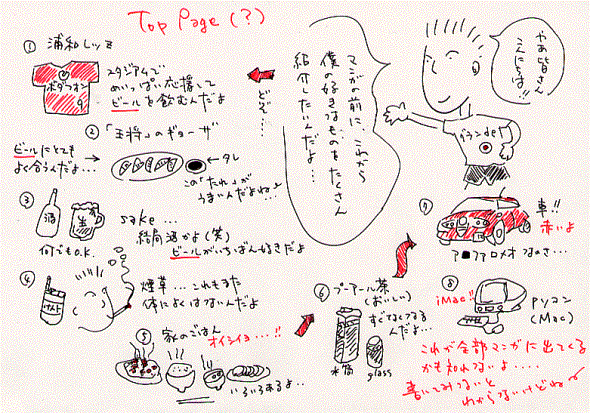 Top Page(?)
やあ皆さん
こんにちは!!
マンガの前に、これから
僕の好きなものをたくさん
紹介したいんだよ…
どぞ……
① 浦和レッズ
ボダフォン
9
スタジアムで
めいっぱい応援して
ビールを飲むんだよ
② 「王将」のギョーザ
ビールにとても
よく合うんだよ…
タレ
この「たれ」が
うまいんだよね…
③
酒
生
sake…
結局酒かよ(笑)
ビールがいちばん好きだよ
何でもO.K.
④
煙草…これもまた
体によくはないんだよ
⑤ 家のごはん
オイシイヨ…!!
いろいろあるよ…
⑥ プーアール茶
(おいしい)
すごくなごめる
んだよ…
水筒
glass
⑦
車!!
赤いよ
アルファロメオなのさ…
⑧
iMac!!
パソコン
(Mac)
これが全部マンガに出てくる
かも知れないよ....
書いてみないと
わからないけどね